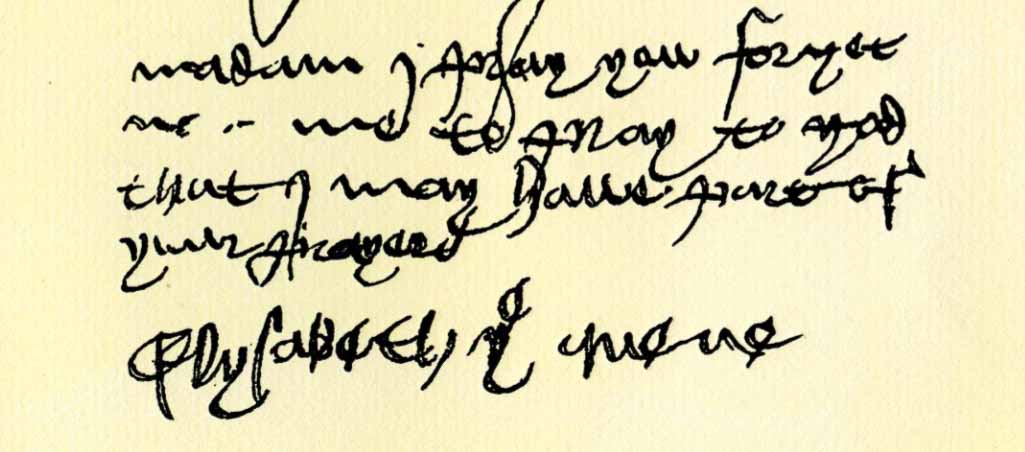 madam j pray you forget
me to pray to god
that j may haue part of
your prayers
Elysabeth yᵉ quene